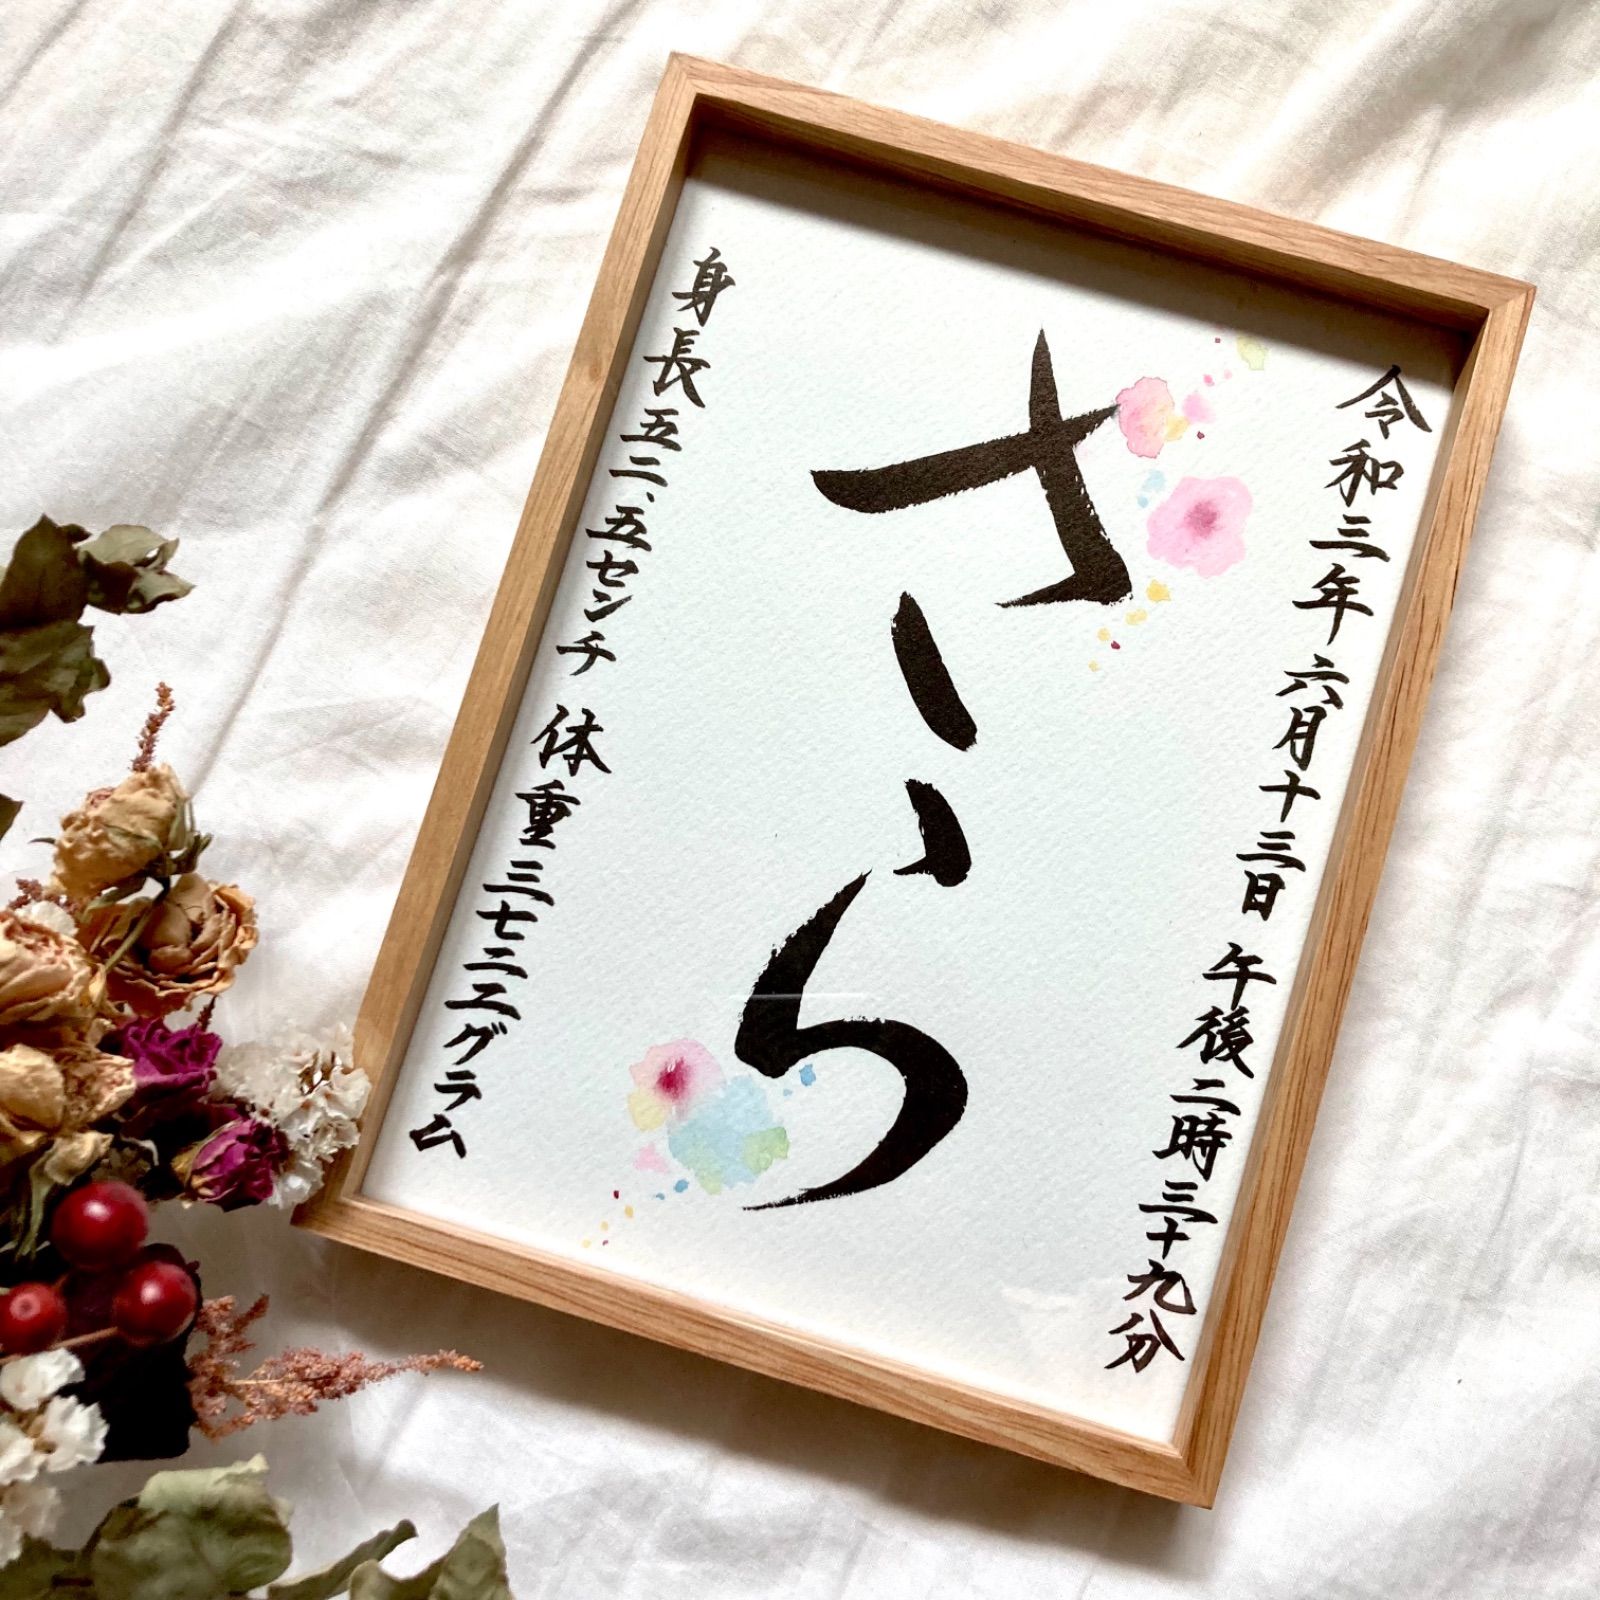 令和三年 六月十三日 午後二時三十九分
さら
身長五二、五センチ 体重三七二二グラム